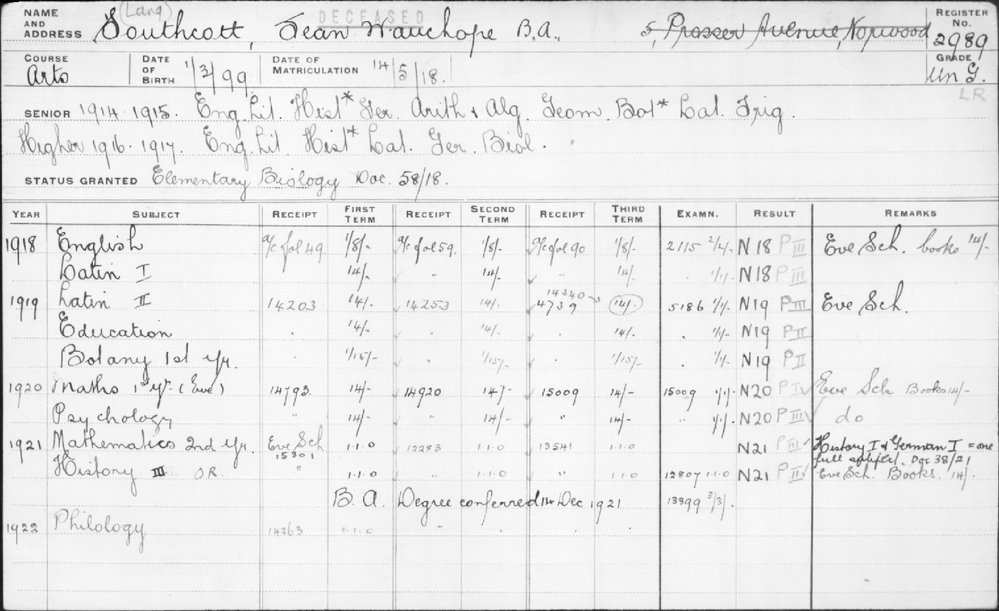 (Lang) DECEASED
NAME AND ADDRESS Southcott, Jean Wauchope B.A., 5, Prosser Avenue, Norwood REGISTER No. 2989
COURSE Arts DATE OF BIRTH 1/3/99 DATE OF MATRICULATION 14/5/18. GRADE Un G.
LR
SENIOR 1914-1915. Eng. Lit. Hist* Ger. Arith & Alg. Geom. Bot* Lat. Trig.
Higher 1916-1917. Eng. Lit. Hist* Lat. Ger. Biol.
STATUS GRANTED Elementary Biology Doc. 58/18.
YEAR SUBJECT RECEIPT FIRST TERM RECEIPT SECOND TERM RECEIPT THIRD TERM EXAMN. RESULT REMARKS
1918 English a/c fol 49 1/8/- a/c fol 59. 1/8/- a/c fol 90 1/8/- 2115 2/2/- N18 P III Eve Sch. books 14/-
Latin I 14/- " 14/- 14/- 1/1/- N18 P III
1919 Latin II 14203 14/- 14253 14/- 14340 4739 14/- 5186 1/1/- N19 P III Eve Sch.
Education 14/- 14/- 14/- 1/1/- N19 P II
Botany 1st yr. 1/15/- 1/15/- 1/15/- 1/1/- N19 P II
1920 Maths 1st yr. (Eve) 14793 14/- 14920 14/- 15009 14/- 15009 1/1/- N20 P Eve Sch Books 14/-
Psychology " 14/- " 14/- " 14/- 1/1/- N20 P III do
1921 Mathematics 2nd yr. Eve Sch 15301 1.1.0 12283 1.1.0 13541 1.1.0 N21 P III History I & German I = one full subject. Doc 38/21
History III OR " 1.1.0 " 1.1.0 " 1.1.0 12807 1.1.0 N21 P II Eve Sch. Books. 14/-
B.A. Degree conferred 14 Dec 1921 13399 3/3/-
1922 Philology 14263 1.1.0